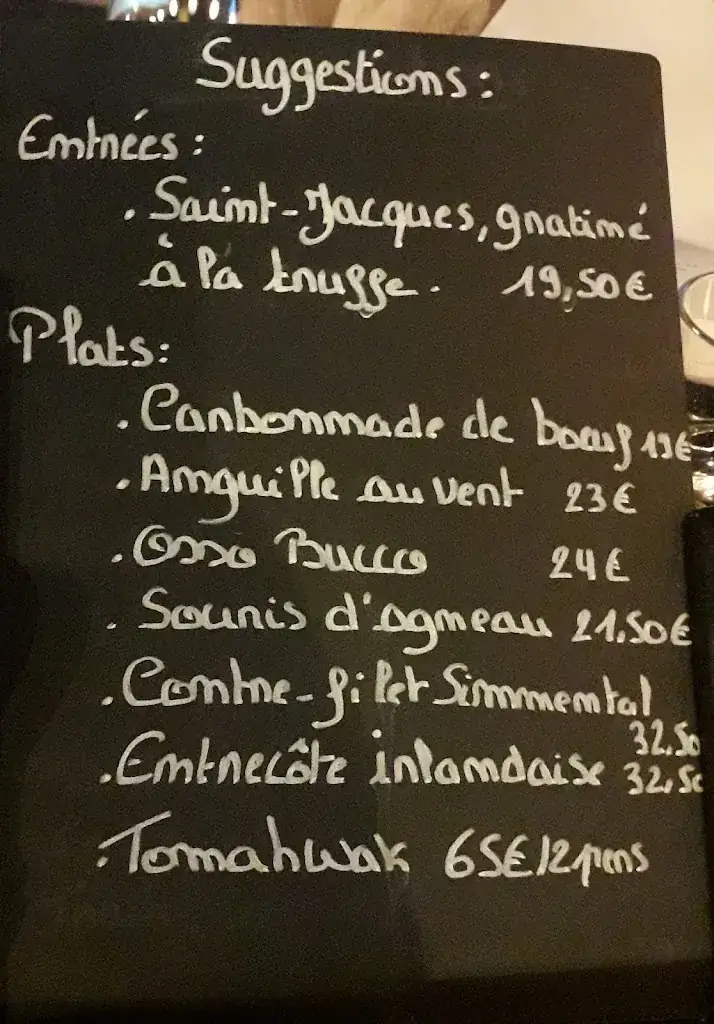 Suggestions:
Entrées:
. Saint-Jacques, gratiné
à la truffe. 19,50€
Plats:
. Carbonnade de boeuf 19€
. Anguille au vert 23€
. Osso Bucco 24€
. Souris d'agneau 21.50€
. Contre-filet Simmental
32.50
. Entrecôte irlandaise 32,50
. Tomahwak 65€/2pers